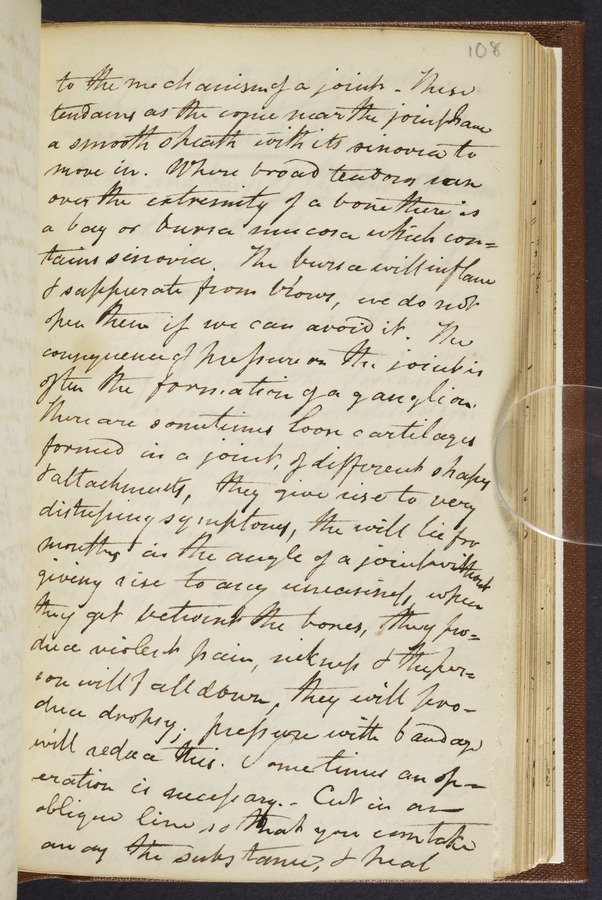 108
to the mechanism of a joint - These
tendains as the come near the joint have
a smooth sheath with its sinovia to
move in. Where broad tendons run
over the extremity of a bone there is
a bag or bursa mucosa which con=
tains sinovia. The bursa will inflame
& suppurate from blows, we do not
open them if we can avoid it. The
consequence of pressure on the joint is
often the formation of a ganglion.
There are sometimes loose cartilages
formed in a joint, of different shapes
& attachments, they give rise to very
distressing symptoms, the will lie for
months in the angle of a joint without
giving rise to any uneasiness, when
they get betwixt the bones, they pro=
duce violent pain, sickness & the per=
son will fall down, they will pro-
duce dropsy; pressure with bandage
will reduce this. Sometimes an op-
eration is necessary. - Cut in an
oblique line, so that you can take
away the substance, & heal